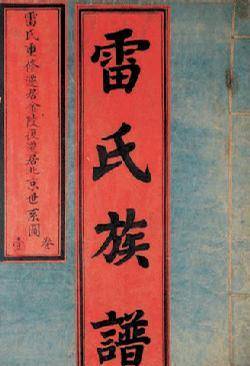 雷氏族譜
雷氏重修遷居金陵復遷居北京世系圖
卷
壹